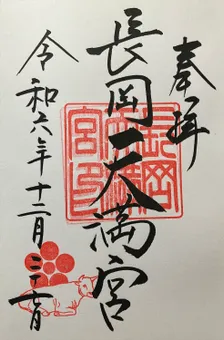 奉拝
長岡天満宮
長岡
天満
宮印
令和六年十二月